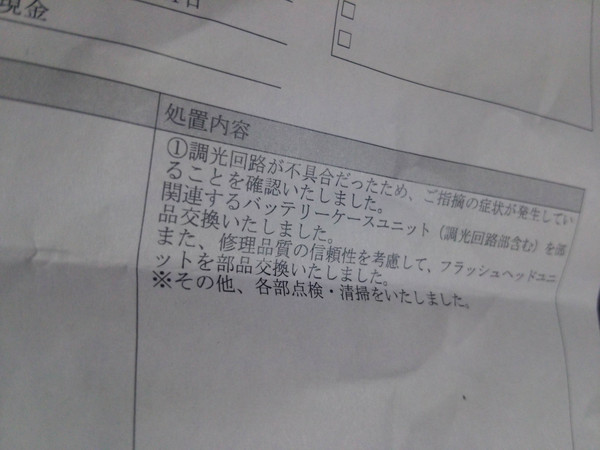 現金
処置内容
①調光回路が不具合だったため、ご指摘の症状が発生してい
ることを確認いたしました。
関連するバッテリーケースユニット（調光回路部含む）を部
品交換いたしました。
また、修理品質の信頼性を考慮して、フラッシュヘッドユニ
ットを部品交換いたしました。
※その他、各部点検・清掃をいたしました。